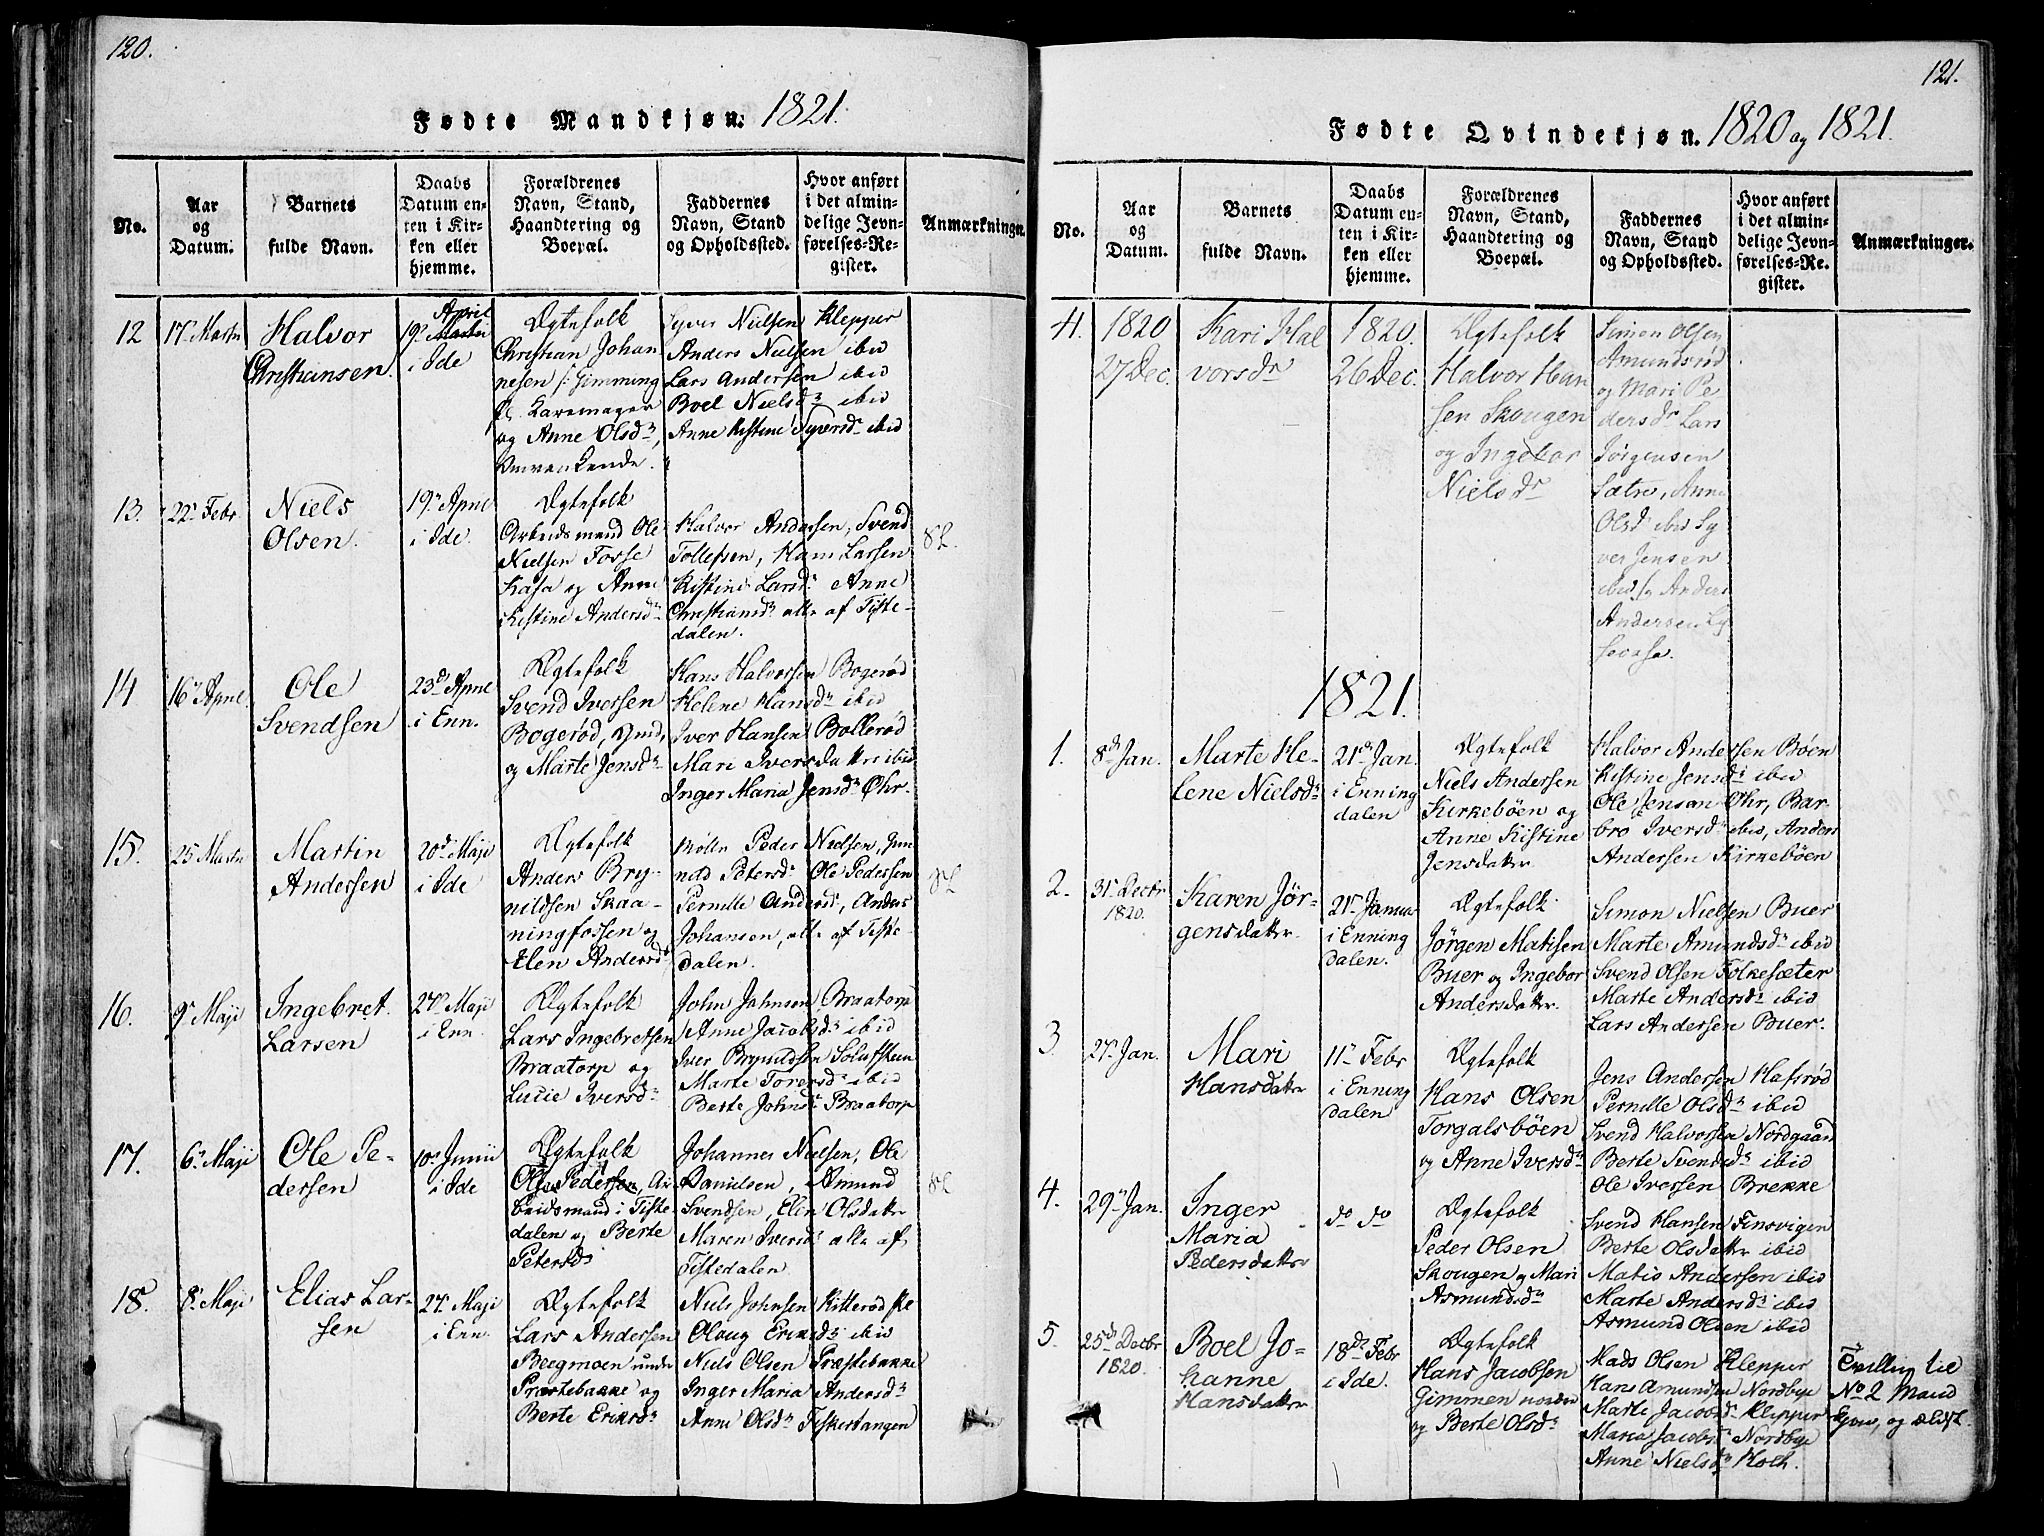 120.
Fødte Mandkjøn. 1821.
No.
Aar
og
Datum.
Barnets
fulde Navn.
Daabs
Datum en-
ten i Kir-
ken eller
hjemme.
Forældrenes
Navn, Stand,
Haandtering og
Boepæl.
Faddernes
Navn, Stand
og Opholdssted.
Hvor anført
i det almin-
delige Jevn-
førelses-Re-
gister.
Anmærkninger.
12
17 Martii
Halvor
Christiansen.
April
19 Martii
i Ide
Ægtefolk
Christian Johan
nesen Gimming
og Anne Olsdr
Omvankende.
Syver Nielsen Klepper
Anders Nielsen ibid
Lars Andersen ibid
Boel Nielsdr ibid
Anne Kistine Syversdr ibid
13.
22 Febr.
Niels
Olsen.
19 April
i Ide.
Ægtefolk
Arbeidsmand Ole
Nielsen Fosse
Kasa og Anne
Kistine Andersdr
Halvor Andersen, Svend
Tollefsen, Hans Larsen
Kistine Larsdr Anne
Christiansdr alle af Tiste-
dalen.
14
16 April
Ole
Svendsen
23 April
i Enn.
Ægtefolk
Svend Iversen
Bogerød,
og Marte Jensdr
Hans Halvorsen Bogerød
Helene Hansdr ibid
Iver Hansen Bollerød
Mari Iversdatter ibid
Inger Maria Jensdr Øhr.
15.
25 Martii
Martin
Andersen
20 Maji
i Ide
Ægtefolk
Anders Bry-
nildsen Skaa-
ningfossen og
Elen Andersdr
Møller Peder Nielsen, Gun
nild Petersdr Ole Pedersen
Pernille Andersdr, Anders
Johansen, alle af Tiste-
dalen.
16.
9 Maji
Ingebret
Larsen
27 Maji
i Enn.
Ægtefolk
Lars Ingebretsen
Braatorp og
Lucie Iversdr
John Johnsen Braatorp
Anne Jacobsdr ibid
Iver Brynildsen Solufsteen
Marte Toresdr ibid
Berte Johnsdr Braatorp
17.
6 Maji
Ole Pe-
dersen
10 Junii
i Ide
Ægtefolk
Pedersen, Ar
beidsmand i Tiste
dalen og Berte
Petersdr
Johannes Nielsen, Ole
Danielsen, Asmund
Svendsen, Elen Olsdatter
Maren Iversdr alle af
Tistedalen
18.
8 Maji
Elias Lar-
sen
27 Maji
i Enn.
Ægtefolk
Lars Andersen
Bergmoen under
Præstebakke og
Berte Eriksdr
Niels Johnsen Kitterød
Oloug Eriksdr ibid
Niels Olsen Præstebakke
Inger Maria Andersdr
Anne Olsdr Fiskertangen
121.
Fødte Qvindekjøn. 1820 og 1821.
No.
Aar
og
Datum.
Barnets
fulde Navn.
Daabs
Datum en-
ten i Kir-
ken eller
hjemme.
Forældrenes
Navn, Stand,
Haandtering og
Boepæl.
Faddernes
Navn, Stand
og Opholdssted.
Hvor anført
i det almin-
delige Jevn-
førelses-Re-
gister.
Anmærkninger.
41.
1820
27 Dec.
Kari Hal
vorsdr
1820.
26 Dec.
Ægtefolk
Halvor Han
sen Skougen
og Ingebor
Nielsdr
Simon Olsen
Amundsrød
og Mari Pe
dersdr Lars
Jörgensen
Sætre, Anne
Olsdr ibid Sy
ver Jensen
ibid og Anders
Andersen
1821.
1.
8 Jan.
Marte He-
lene Nielsdr
21 Jan.
i Enning
dalen
Ægtefolk
Niels Andersen
Kirkebøen og
Anne Kistine
Jensdatter
Halvor Andersen Bøen
Kistine Jensdr ibid
Ole Jensen Øhr, Bar-
bro Iversdr ibid, Anders
Andersen Kirkebøen
2.
31 Decbr
1820.
Karen Jör-
gensdatter
21 Janua
i Enning
dalen.
Ægtefolk
Jørgen Matisen
Buer og Ingebor
Andersdatter.
Simon Nielsen Buer
Marte Amundsdr ibid
Svend Olsen Folkesæter
Marte Andersdr ibid
Lars Andersen Buer.
3.
27 Jan.
Mari
Hansdatter
11 Febr
i Enning
dalen
Ægtefolk
Hans Olsen
Torgalsbøen
og Anne Iversdr
Jens Andersen Hafsrød
Pernille Olsdr ibid
Svend Halvorsen Nordgaard
Berte Svendsdr ibid
Ole Iversen Brekke
4.
29 Jan.
Inger
Maria
Pedersdatter
do do
Ægtefolk
Peder Olsen
Skougen og Mari
Asmundsdr
Svend Hansen Finsvigen
Berte Olsdatter ibid
Matis Andersen ibid
Marte Andersdr ibid
Asmund Olsen ibid
5.
25 Decbr
1820.
Boel Jo-
hanne
Hansdatter
18 Febr
i Ide.
Ægtefolk
Hans Jacobsen
Gimmen nordre
og Berte Olsdr
Mads Olsen Klepper
Hans Amundsen Nordbye
Marte Jacobsdr Klepper
Maria Jacobsdr Nordbye
Anne Nielsdr Holt.
Tvilling til
No 2 Mand
kjøn, og ældst